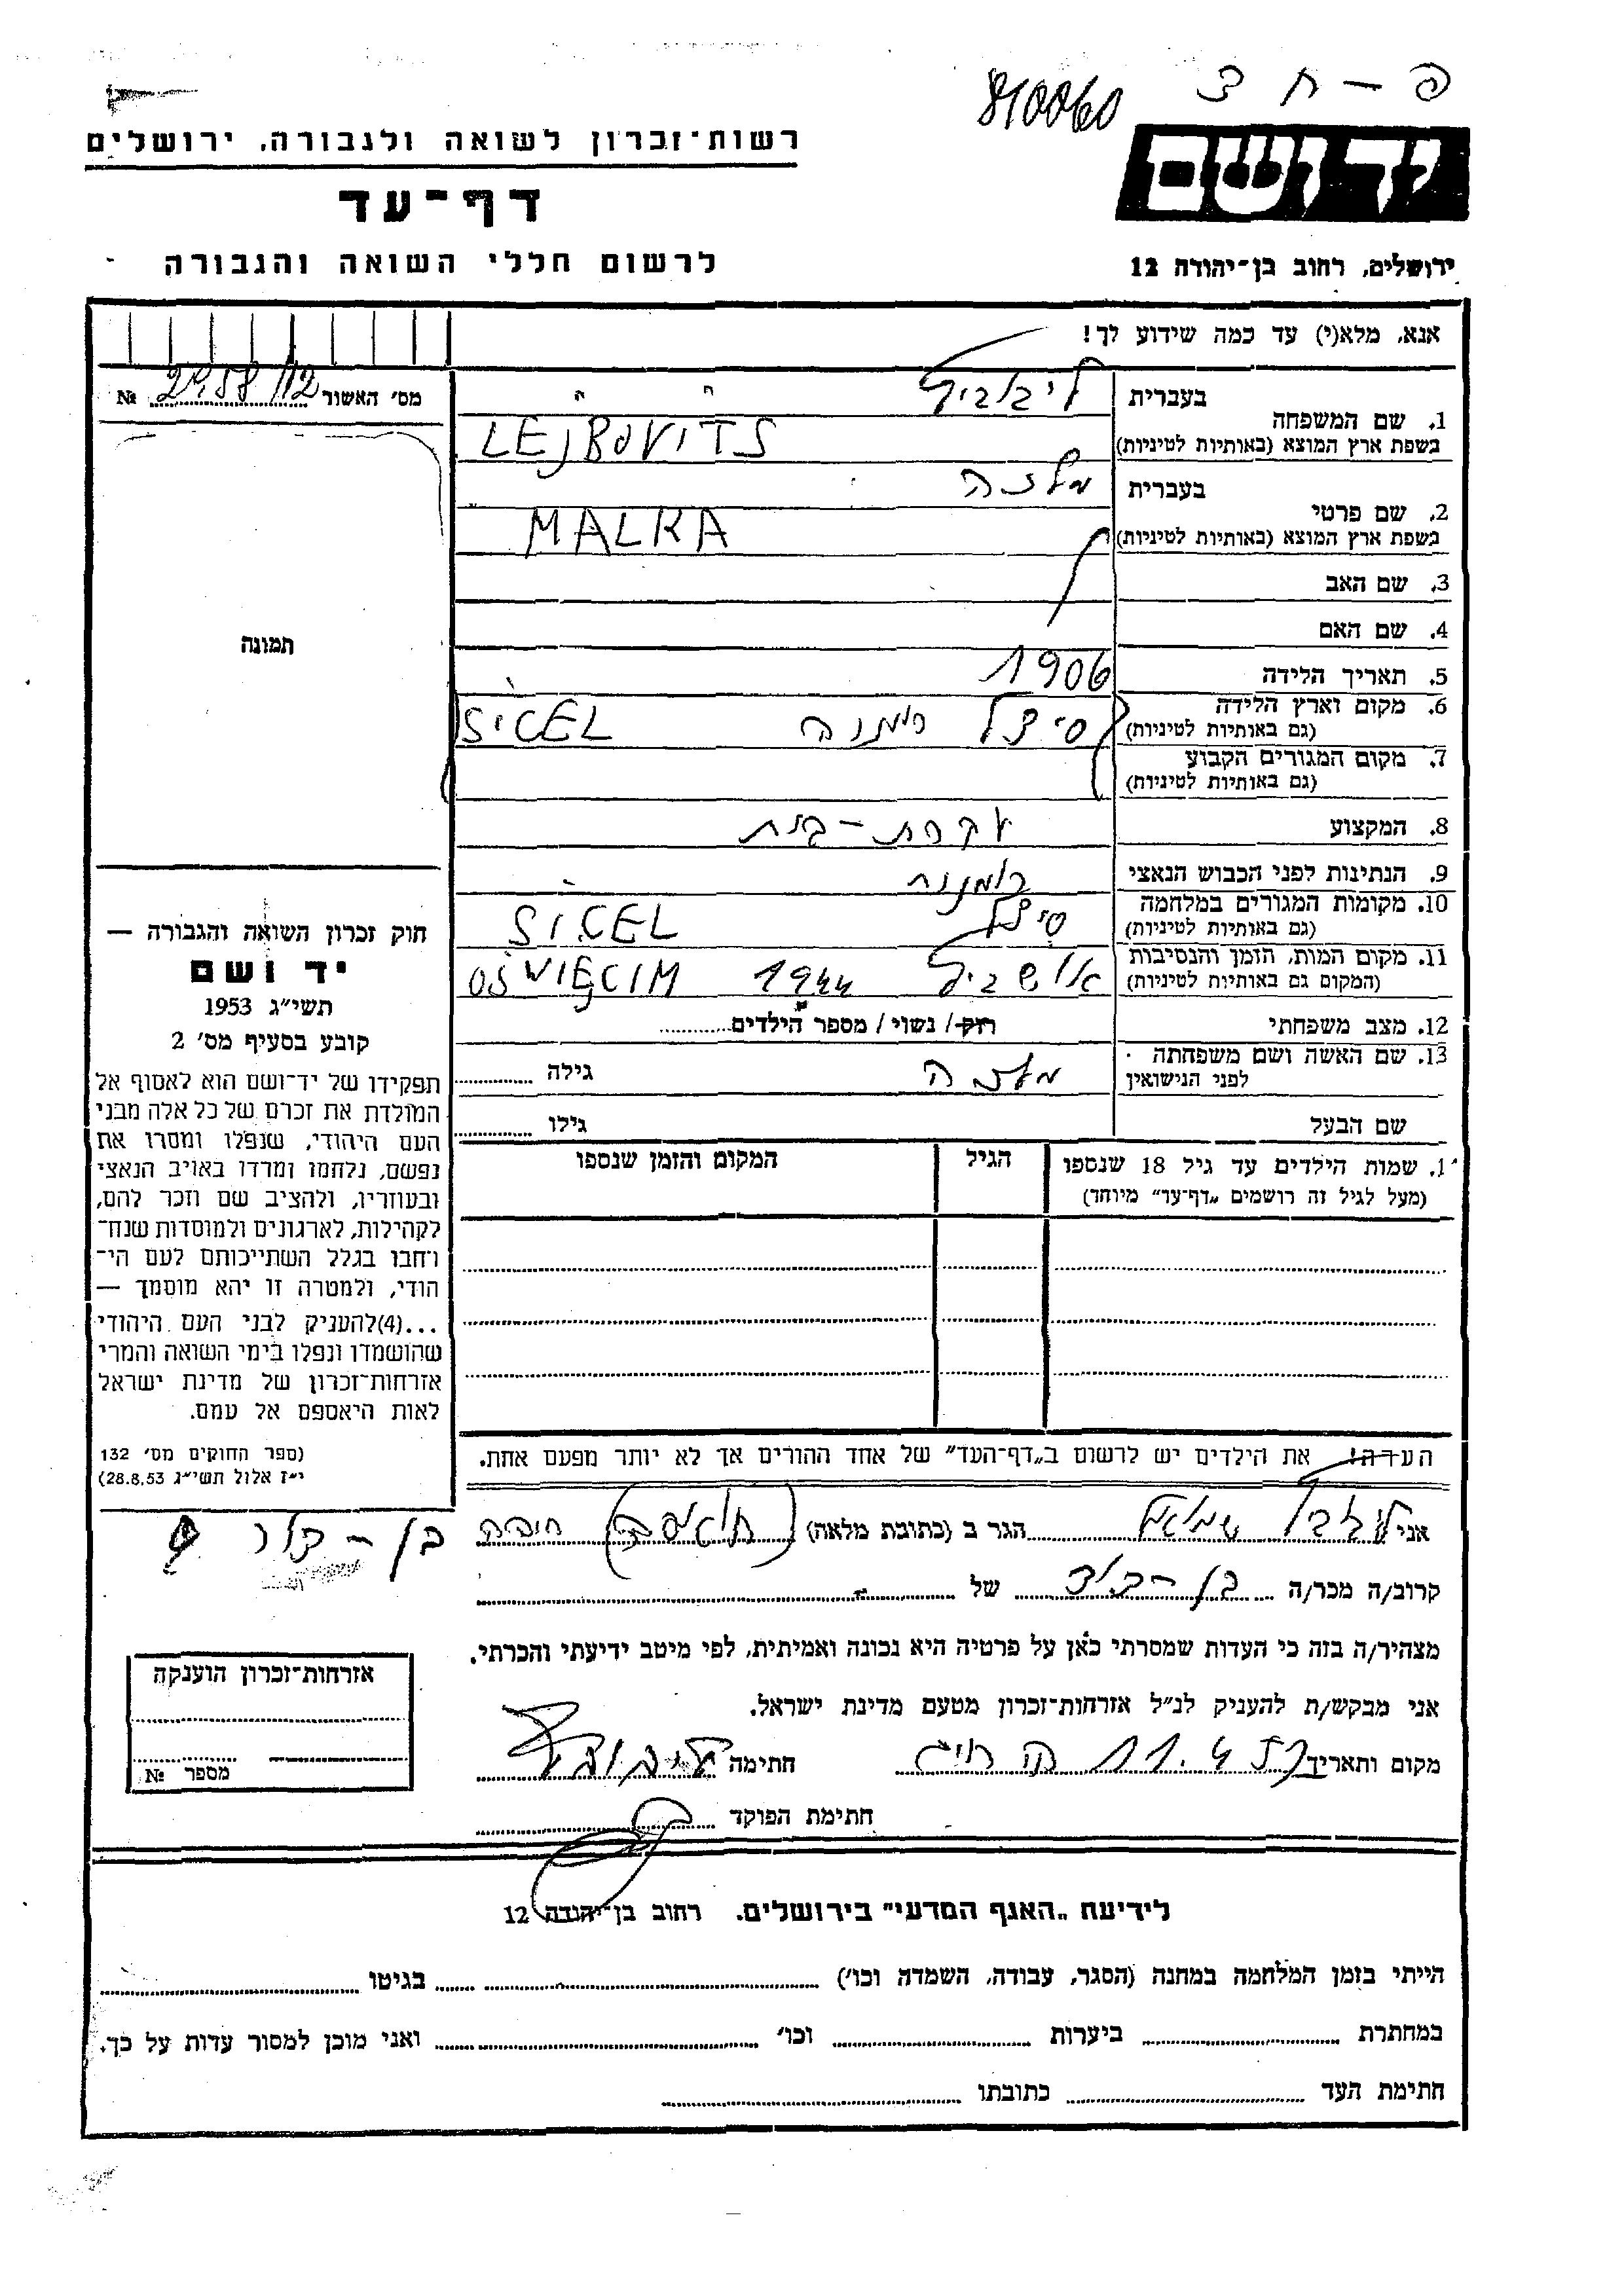 810060
פ - ח צ
רשות־זכרון לשואה ולגבורה, ירושלים
יד ושם
דף־עד
לרשום חללי השואה והגבורה
ירושלים, רחוב בן־יהודה 12
אנא, מלא(י) עד כמה שידוע לך!
מס׳ האשור №
בעברית
1. שם המשפחה
בשפת ארץ המוצא (באותיות לטיניות) LEJBOVITS
בעברית מלכה
2. שם פרטי
בשפת ארץ המוצא (באותיות לטיניות) MALKA
3. שם האב
4. שם האם
תמונה
5. תאריך הלידה 1906
6. מקום וארץ הלידה סיצל רומניה SICEL
(גם באותיות לטיניות)
7. מקום המגורים הקבוע
(גם באותיות לטיניות)
8. המקצוע עקרת-בית
9. הנתינות לפני הכבוש הנאצי רומנית
10. מקומות המגורים במלחמה סיצל SICEL
(גם באותיות לטיניות)
11. מקום המות, הזמן והנסיבות אושביץ 1944 OŚWIĘCIM
(המקום גם באותיות לטיניות)
12. מצב משפחתי רוק/ נשוי/ מספר הילדים
13. שם האשה ושם משפחתה מלכה גילה
לפני הנישואין
שם הבעל גילו
1. שמות הילדים עד גיל 18 שנספו הגיל המקום והזמן שנספו
(מעל לגיל זה רושמים „דף־עד״ מיוחד)
הערה! את הילדים יש לרשום ב„דף־העד״ של אחד ההורים אך לא יותר מפעם אחת.
חוק זכרון השואה והגבורה —
יד ושם
תשי״ג 1953
קובע בסעיף מס׳ 2
תפקידו של יד־ושם הוא לאסוף אל
המולדת את זכרם של כל אלה מבני
העם היהודי, שנפלו ומסרו את
נפשם, נלחמו ומרדו באויב הנאצי
ובעוזריו, ולהציב שם וזכר להם,
לקהילות, לארגונים ולמוסדות שנח־
רחבו בגלל השתייכותם לעם הי־
הודי, ולמטרה זו יהא מוסמך —
...(4)להעניק לבני העם היהודי
שהושמדו ונפלו בימי השואה והמרי
אזרחות־זכרון של מדינת ישראל
לאות היאספם אל עמם.
(ספר החוקים מס׳ 132
י״ז אלול תשי״ג 28.8.53)
אני הגר ב (כתובת מלאה) חיפה
קרוב/ה מכר/ה בן-דוד של
מצהיר/ה בזה כי העדות שמסרתי כאן על פרטיה היא נכונה ואמיתית, לפי מיטב ידיעתי והכרתי.
אני מבקש/ת להעניק לנ״ל אזרחות־זכרון מטעם מדינת ישראל.
מקום ותאריך חתימה
חתימת הפוקד
אזרחות־זכרון הוענקה
מספר №
לידיעת „האגף המדעי״ בירושלים. רחוב בן־יהודה 12
הייתי בזמן המלחמה במחנה (הסגר, עבודה, השמדה וכו׳) בגיטו
במחתרת ביערות וכו׳ ואני מוכן למסור עדות על כך.
חתימת העד כתובתו